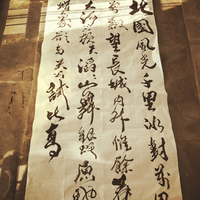 北國風光千里冰封萬里
雪飄望長城內外惟餘莽
大河上下頓失滔滔山舞銀蛇原馳
蠟象欲与天公試比高